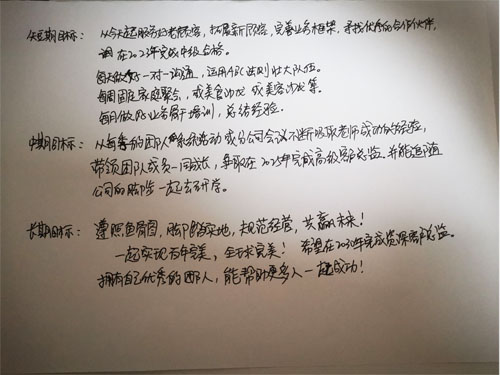 短期目标： 从今天起服务好老顾客，拓展新顾客，完善业务框架，寻找优秀的合作伙伴，
在2023年完成中级合格。
每天做好一对一沟通，运用ABC法则壮大队伍。
每周固定家庭聚会，或美食沙龙 或美容沙龙等。
每月做好业务骨干培训，总结经验。
中期目标： 从每季的团队 系统活动 或分公司会议不断吸取老师成功的经验，
带领团队成员一同成长，争取在2025年完成高级客户总监，并能追随
公司的脚步 一起去研学。
长期目标： 遵照鱼骨图，脚踏实地，去规范经营，共赢未来！
一起实现百年完美，全球完美！ 希望在2030年完成资深客户总监。
拥有自己优秀的团队，能帮助更多人一起成功！